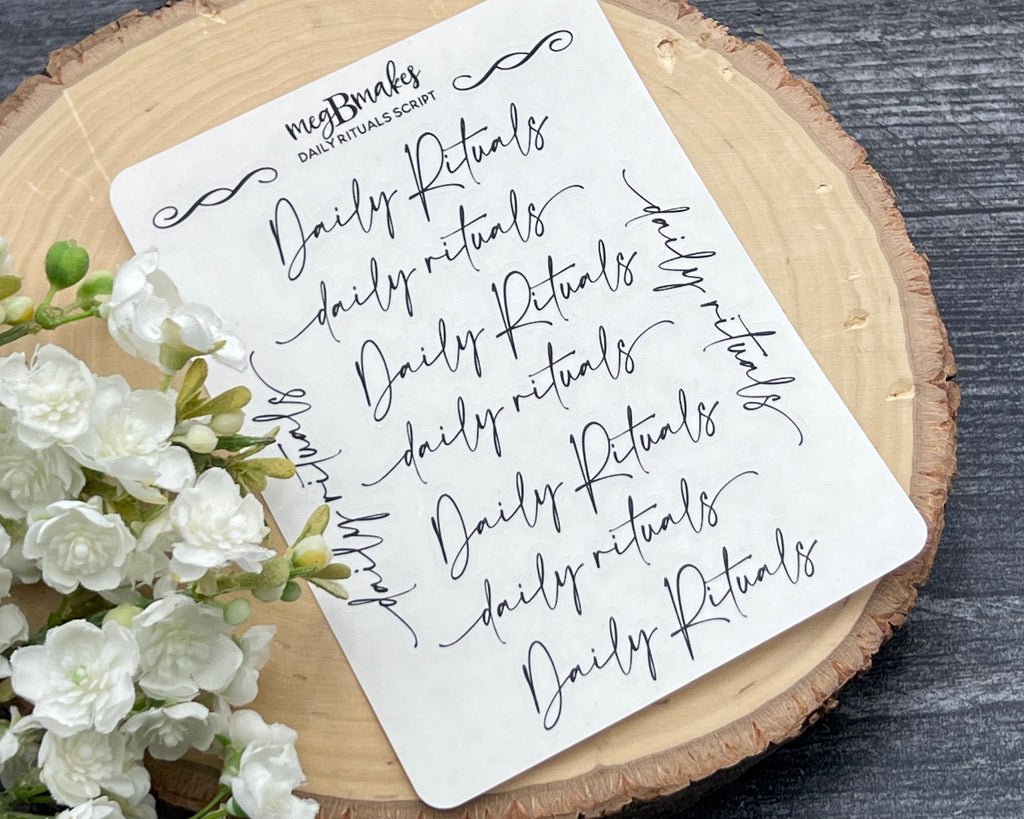 megBmakes
DAILY RITUALS SCRIPT
Daily Rituals
daily rituals
Daily Rituals
daily rituals
Daily Rituals
daily rituals
Daily Rituals
daily rituals
daily rituals